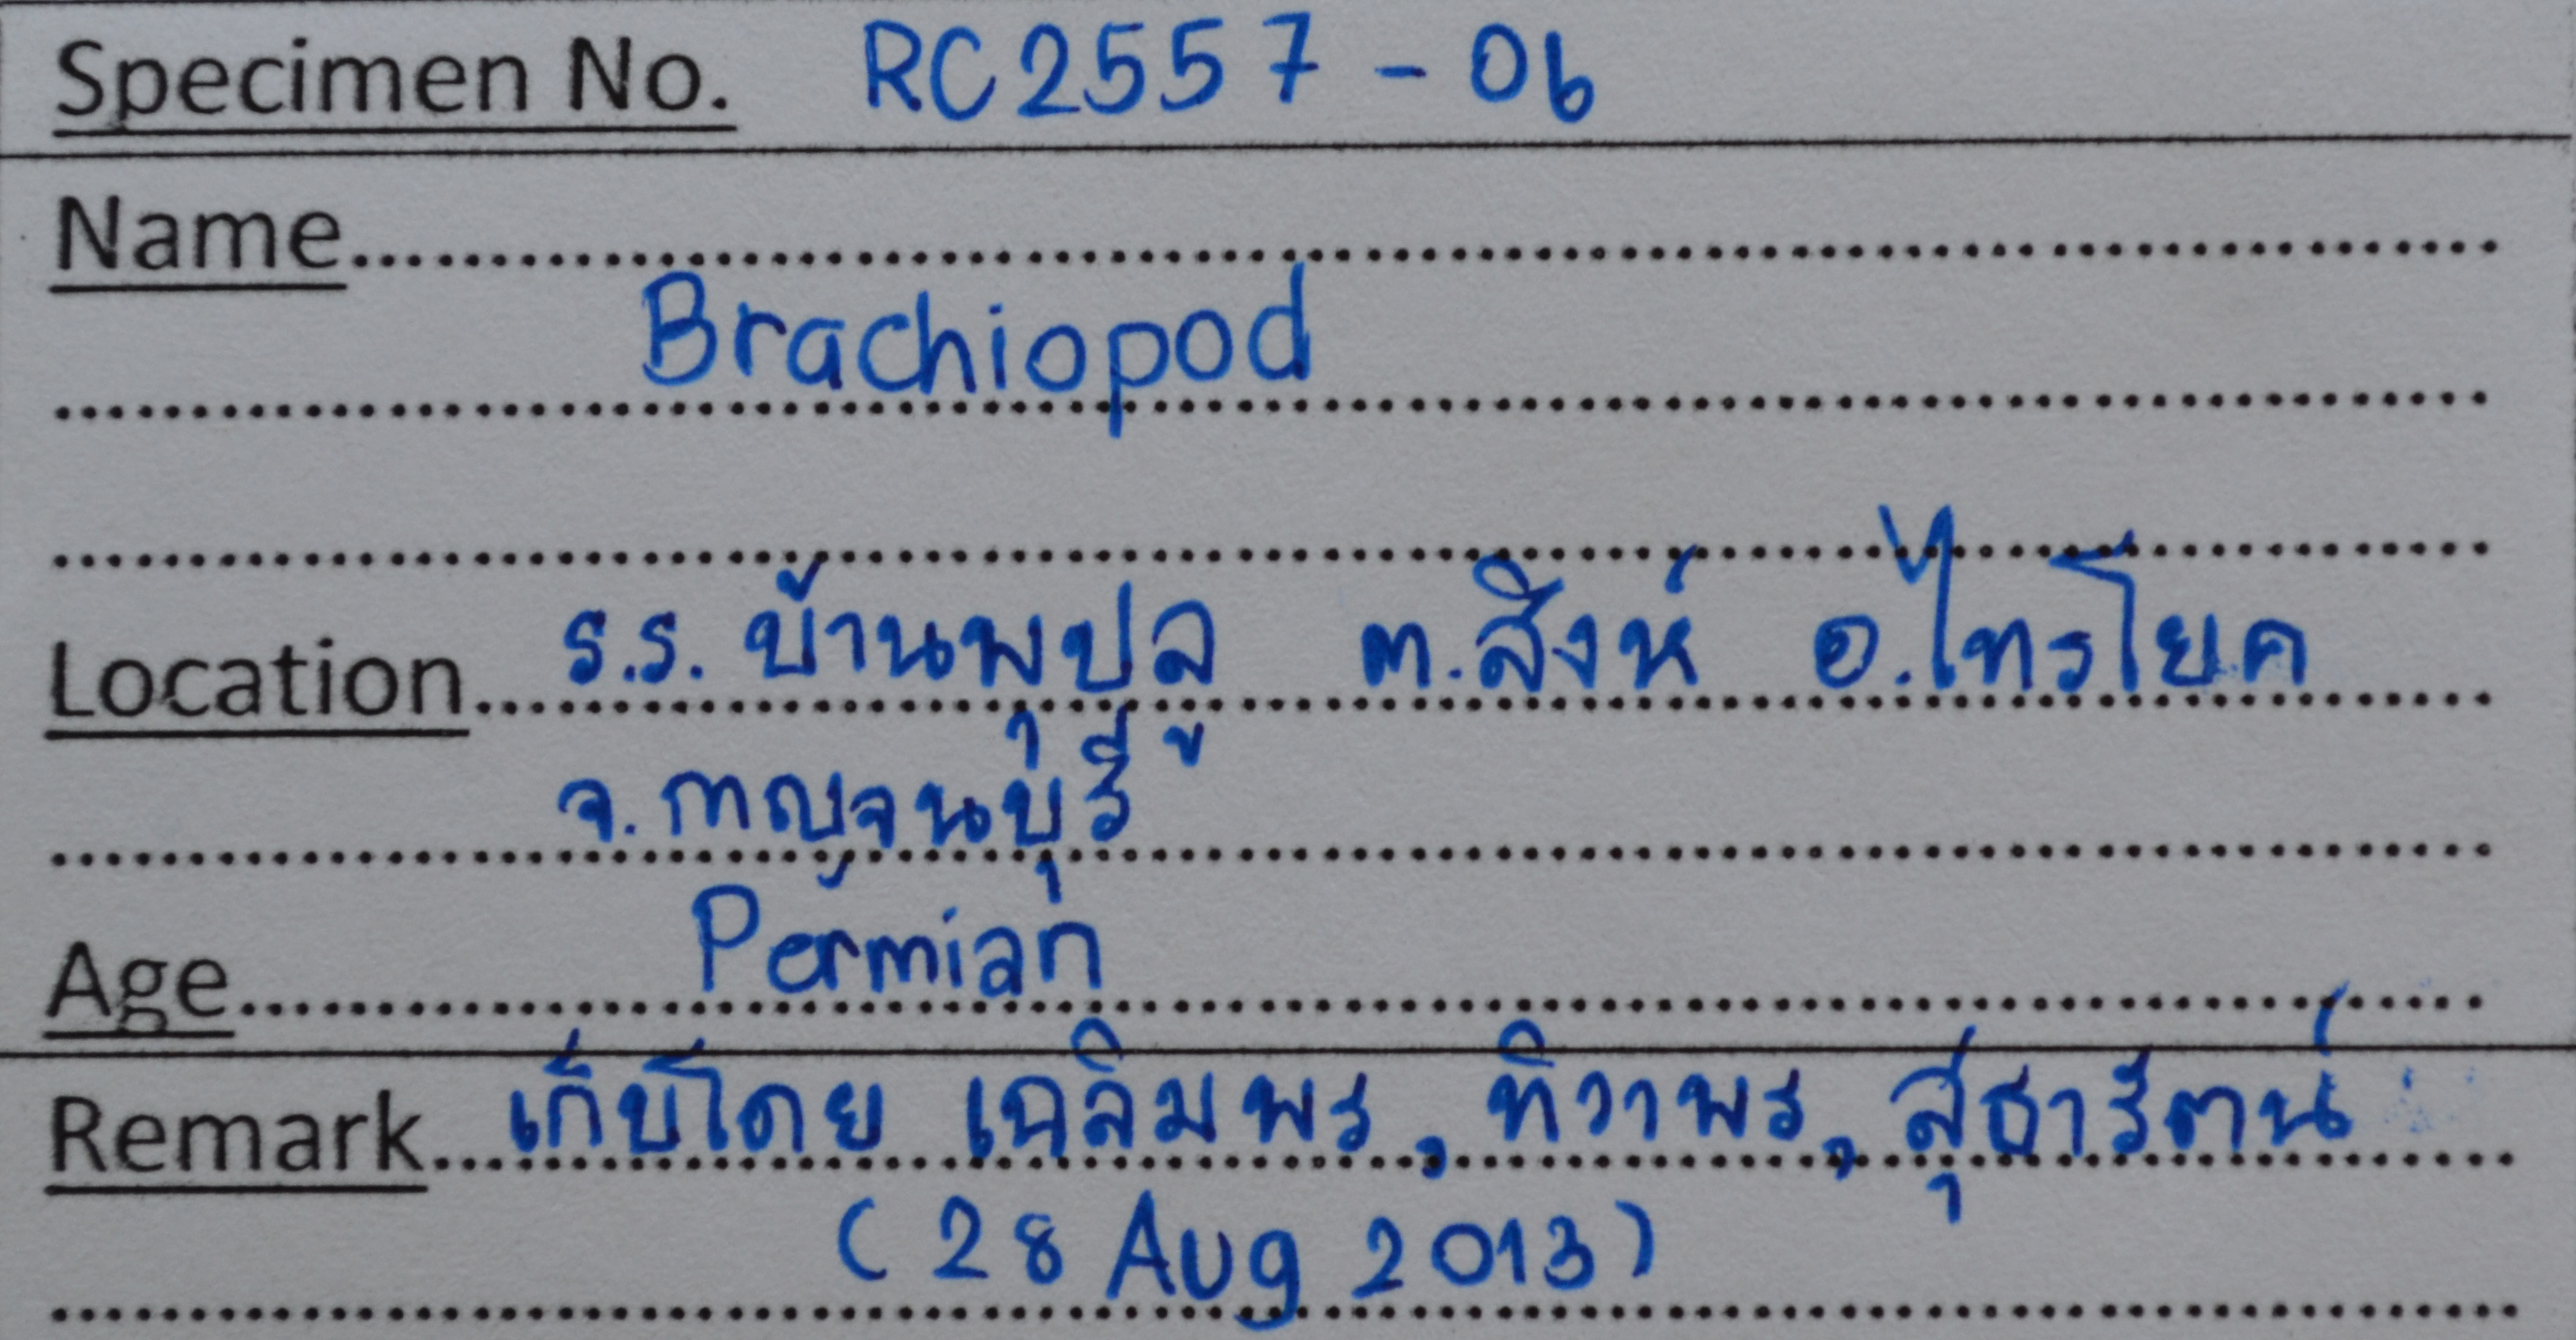 Specimen No. RC2557 - 06
Name
Brachiopod
Location ร.ร. บ้านพุปลู ต.สิงห์ อ.ไทรโยค
จ.กาญจนบุรี
Age Permian
Remark เก็บโดย เฉลิมพร, ทิวาพร, สุธารัตน์
(28 Aug 2013)